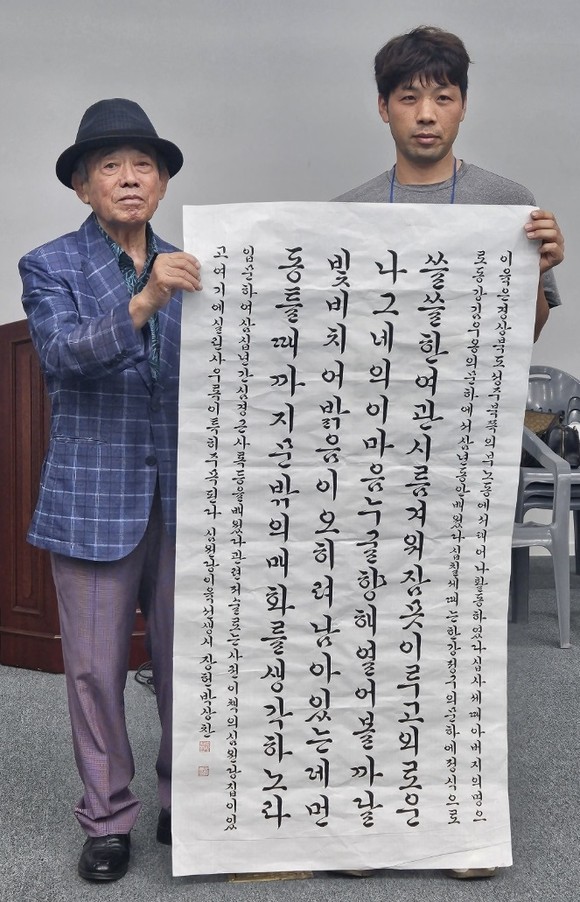 이육은경상북도성주목의 동에서태어나활동하였다십사세때아버지의명으
로동강김우옹의문하에서삼년동안배웠다십칠세때는한강정구의문하에정식으로
쓸쓸한여관시름겨워잠못이루고외로운
나그네의이마음누굴향해열어볼까달
빛비치어밝음이오히려남아있는데먼
동틀때까지문밖의매화를생각하노라
입문하여삼십년간심경근사록등을배웠다관련저술로는사천이책의심원당집이있
고여기에실린사우록이특히주목된다 심원당이육선생시 장헌박상찬